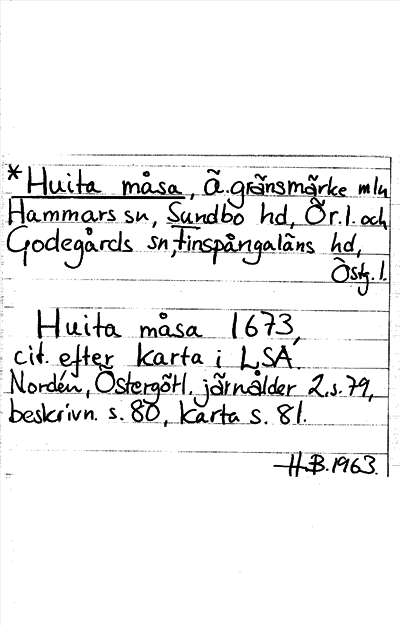 *Huita måsa, ä. gränsmärke mln
Hammars sn, Sundbo hd, Ör.l. och
Godegårds sn, Finspångaläns hd,
Östg.l.
Huita måsa 1673,
cit. efter karta i LSA.
Nordén, Östergötl. järnålder 2, s. 79,
beskrivn. s. 80, karta s. 81.
H.B. 1963.